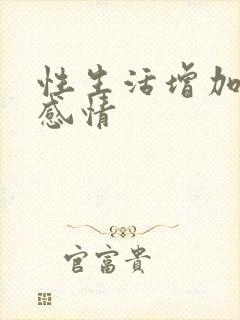 性生活增加
感情
官富貴